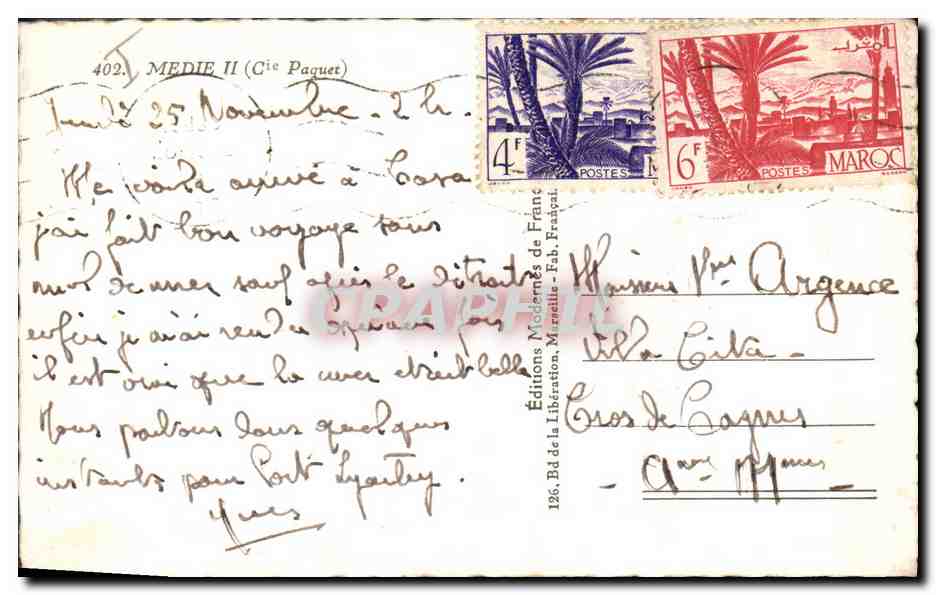 402. MEDIE II (Cie Paquet)
25 Novembre - 2 h.
Me voilà arrivé à Casa
j'ai fait bon voyage sans
mal de mer sauf après le détroit
enfin j'ai rendu pas
il est vrai que la mer était belle
Nous partons dans quelques
instants pour Port Lyautey.
Yves
4F
POSTES
6F
POSTES
MAROC
المغرب
Éditions Modernes de France
126, Bd de la Libération, Marseille - Fab. Français
CPARAMA
Monsieur Argence
Villa Cita -
Cros de Cagnes
- Alpes Mmes -